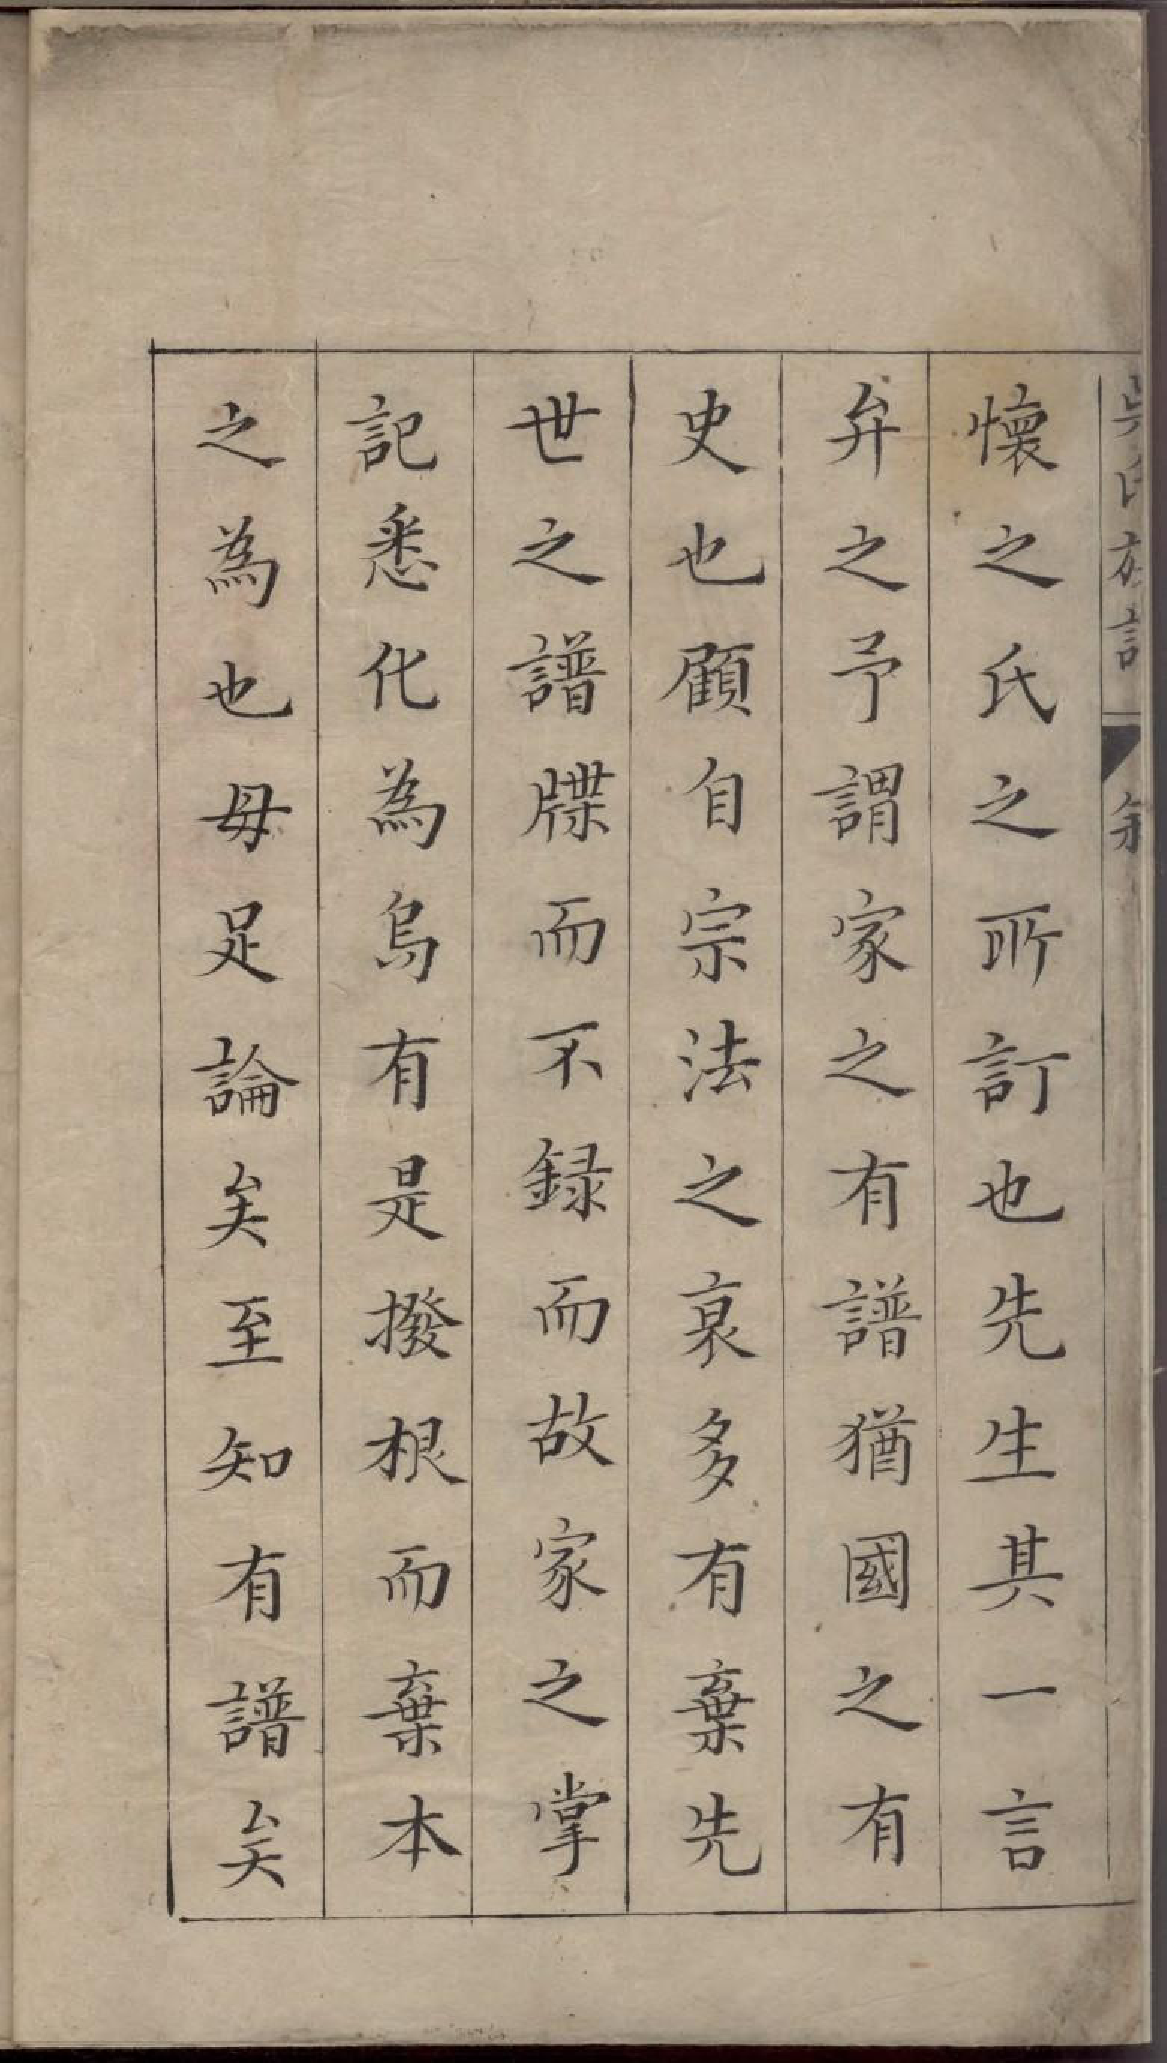 懷之氏之所訂也先生其一言
弁之予謂家之有譜猶國之有
史也顧自宗法之衰多有棄先
世之譜牒而不録而故家之掌
記悉化為烏有是撥根而棄本
之為也毋足論矣至知有譜矣